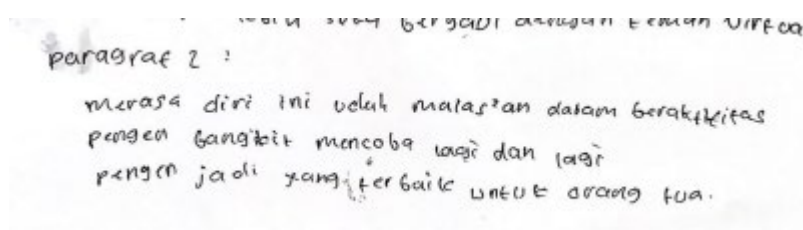 lebih suka bergaul dengan teman virtua
paragraf 2 :
merasa diri ini udah malas²an dalam beraktifitas
pengen bangkit mencoba lagi dan lagi
pengen jadi yang terbaik untuk orang tua.